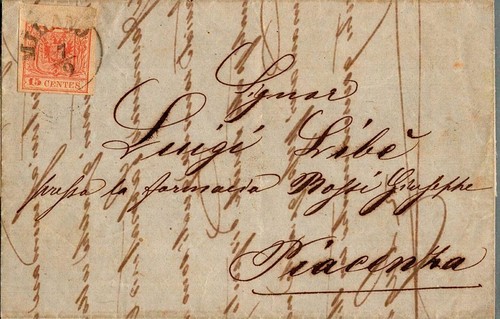 MILANO
15 CENTES
Signor
Luigi Libè
presso la farmacia Rossi Giuseppe
Piacenza